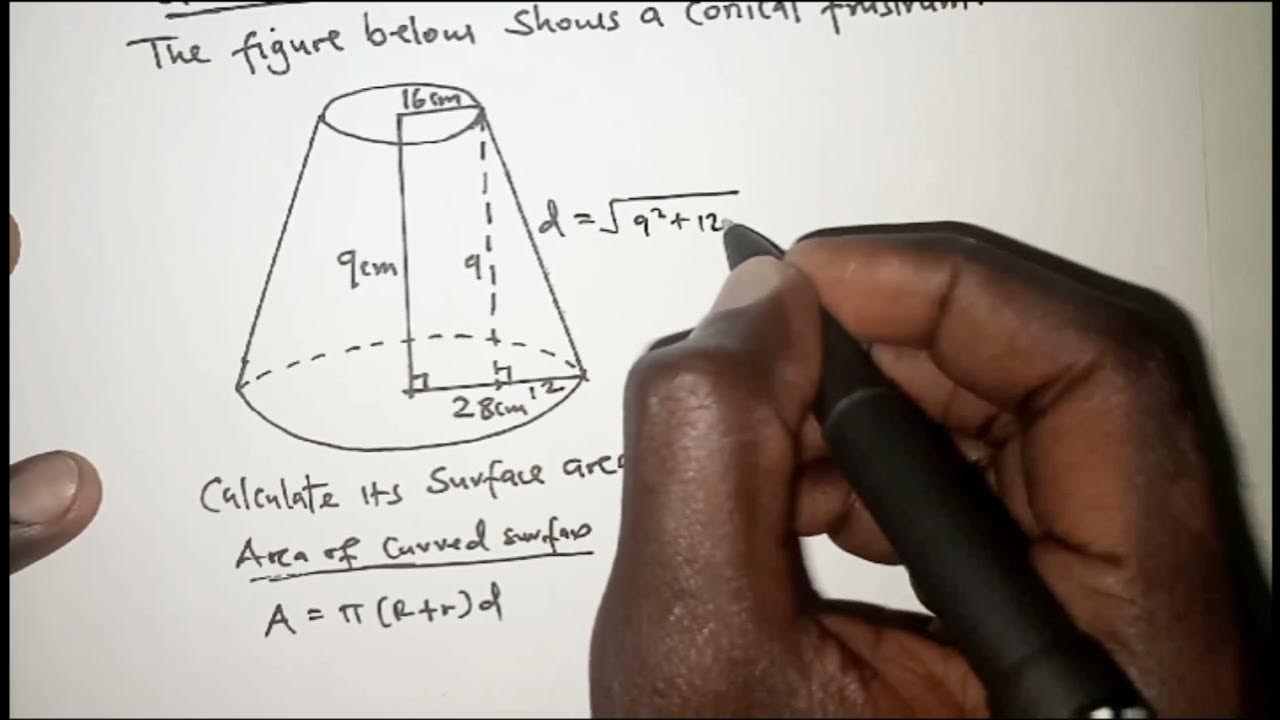 The figure below shows a conical frustrum
16cm
d = √9² + 12
9cm
9
12
28cm
Calculate its Surface area
Area of Curved surface
A = π (R+r) d